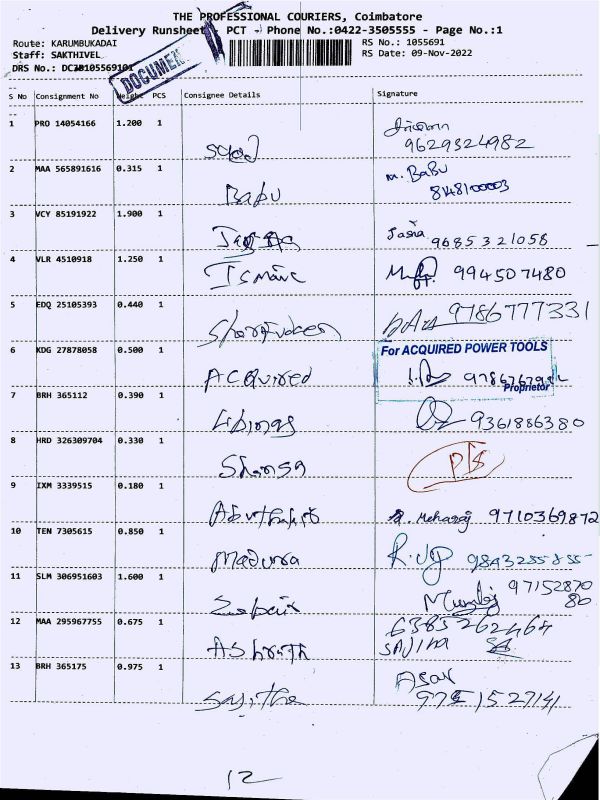 THE PROFESSIONAL COURIERS, Coimbatore
Delivery Runsheet PCT - Phone No.:0422-3505555 - Page No.:1
Route: KARUMBUKADAI
RS No.: 1055691
Staff: SAKTHIVEL
RS Date: 09-Nov-2022
DRS No.:
DOCUMEN
S No Consignment No Weight PCS Consignee Details Signature
1 PRO 14054166 1.200 1
9629324982
2 MAA 565891616 0.315 1 Babu M. BaBu
8148100003
3 VCY 85191922 1.900 1 Jasia 9685321058
4 VLR 4510918 1.250 1 994507480
5 EDQ 25105393 0.440 1 9786777331
6 KDG 27878058 0.500 1 Acquired
For ACQUIRED POWER TOOLS
Proprietor
7 BRH 365112 0.390 1 9361886380
8 HRD 326309704 0.330 1 Shamsa
9 IXM 3339515 0.180 1 Meharaj 9710369872
10 TEN 7305615 0.850 1 Madura 9843255855
11 SLM 306951603 1.600 1 Zubair Mumtaj 97152870
80
12 MAA 295967755 0.675 1 6385262464
SAJINA
13 BRH 365175 0.975 1 Sajitha Asar
9751527141
12